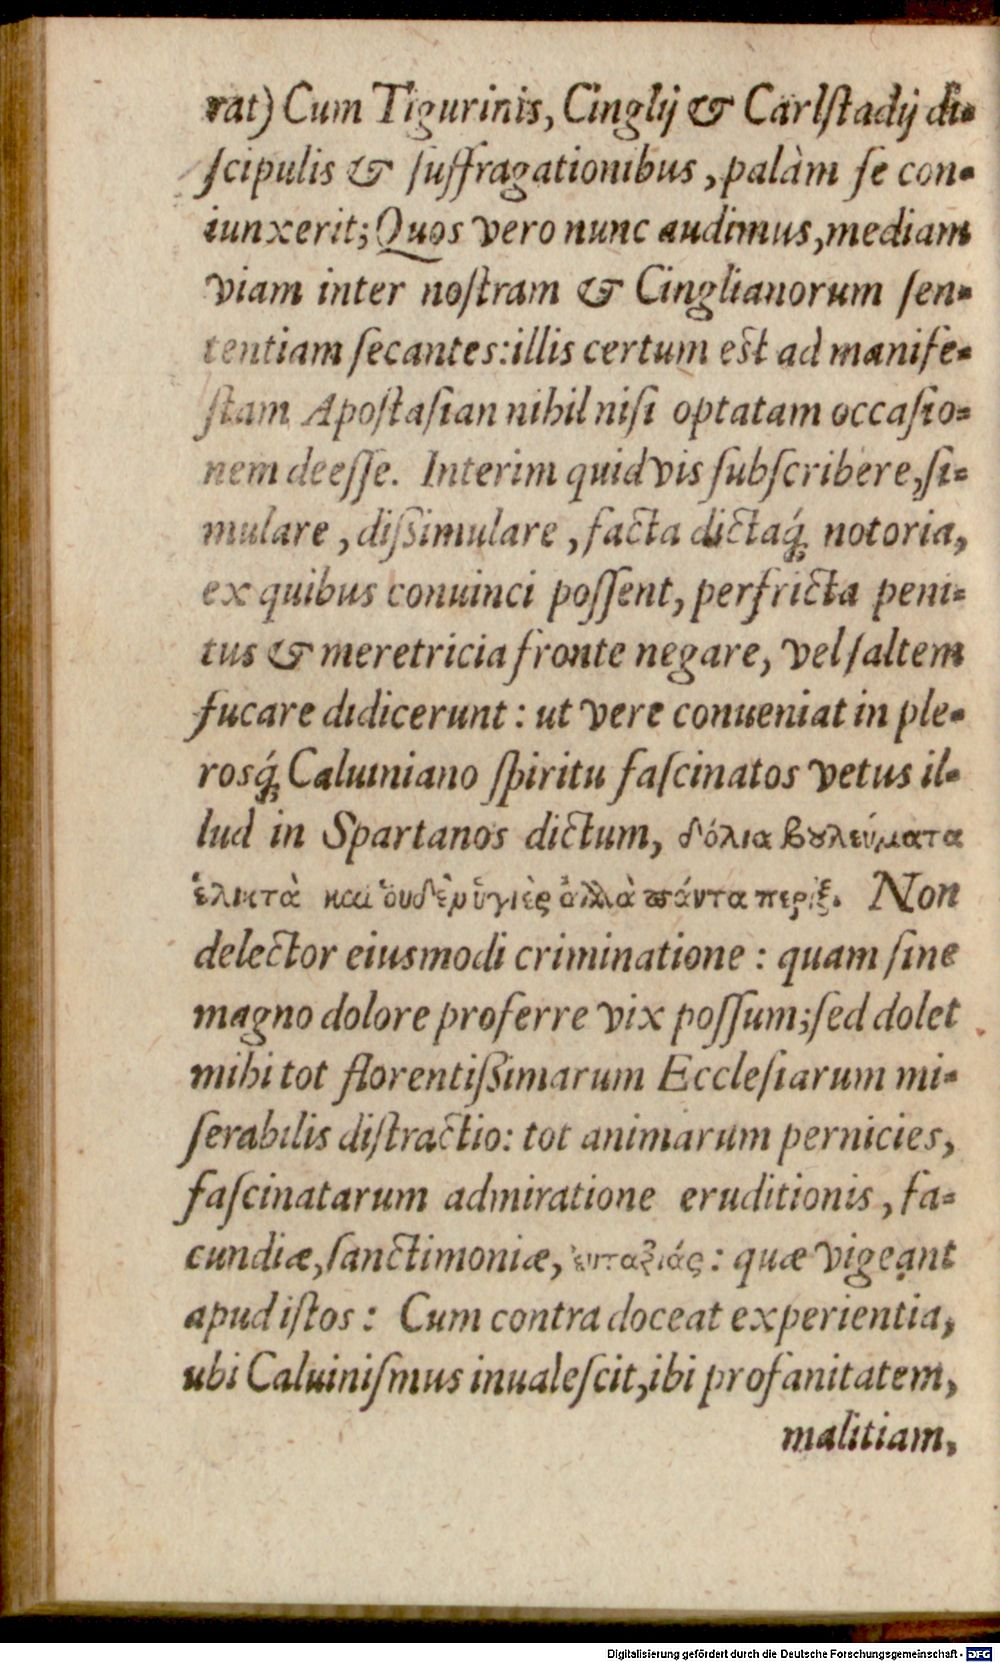 rat) Cum Tigurinis, Cinglij & Carlſtadij di-
ſcipulis & ſuffragationibus, palàm ſe con-
iunxerit; Quos vero nunc audimus, mediam
viam inter noſtram & Cinglianorum ſen-
tentiam ſecantes: illis certum est ad manife-
ſtam Apoſtaſian nihil niſi optatam occaſio-
nem deeſſe. Interim quid vis ſubſcribere, ſi-
mulare, diſſimulare, facta dictaq́ notoria,
ex quibus conuinci poſſent, perfricta peni-
tus & meretricia fronte negare, vel ſaltem
fucare didicerunt: ut vere conueniat in ple-
rosq́ Caluiniano ſpiritu faſcinatos vetus il-
lud in Spartanos dictum, δόλια βȣλεύματα
ἑλικτὰ καὶ ὀυδὲν ὑγιὲς ἀλλὰ πάντα περὶξ. Non
delector eiusmodi criminatione: quam ſine
magno dolore proferre vix poſſum; ſed dolet
mihi tot florentiſſimarum Eccleſiarum mi-
ſerabilis diſtractio: tot animarum pernicies,
faſcinatarum admiratione eruditionis, fa-
cundiæ, ſanctimoniæ, ἐυταξιάς: quæ vigeant
apud iſtos: Cum contra doceat experientia,
ubi Caluiniſmus inualeſcit, ibi profanitatem,
malitiam,
Digitalisierung gefördert durch die Deutsche Forschungsgemeinschaft - DFG